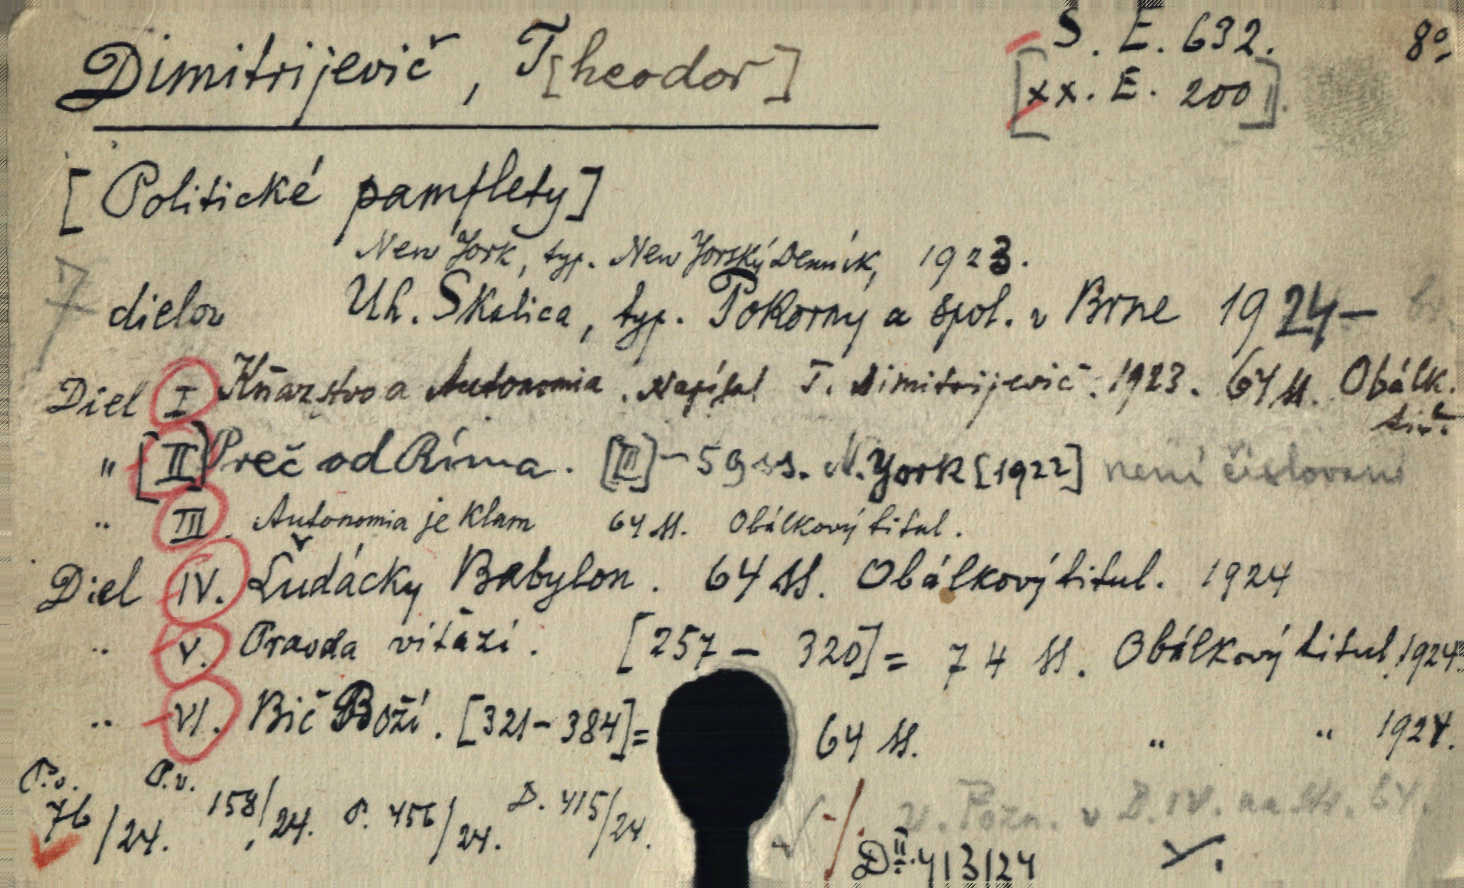 Dimitrijevič, T[heodor]
S. E. 632.
8º
[xx. E. 200].
[Politické pamflety]
New York, typ. New Yorský Denník, 1923.
7 dielov Uh. Skalica, typ. Pokorny a spol. v Brne 1924—
Diel I Kňazstvo a Autonomia. Napísal T. Dimitrijevič. 1923. 64 ss. Obálk. tit.
" [II] Preč od Ríma. [II] – 59 ss. N. York [1922] není číslované
" III. Autonomia je klam 64 ss. Obálkový titul.
Diel IV. Ľuďácky Babylon. 64 ss. Obálkový titul. 1924
" V. Pravda víťazí. [257 – 320] = 74 ss. Obálkový titul. 1924
" VI. Bič Boží. [321–384] = 64 ss. " " 1924.
P.v. 76/24. P.v. 158/24. P. 456/24. D. 415/24.
v. Pozn. v D. IV. na str. 64.
D II. 413/24 V.